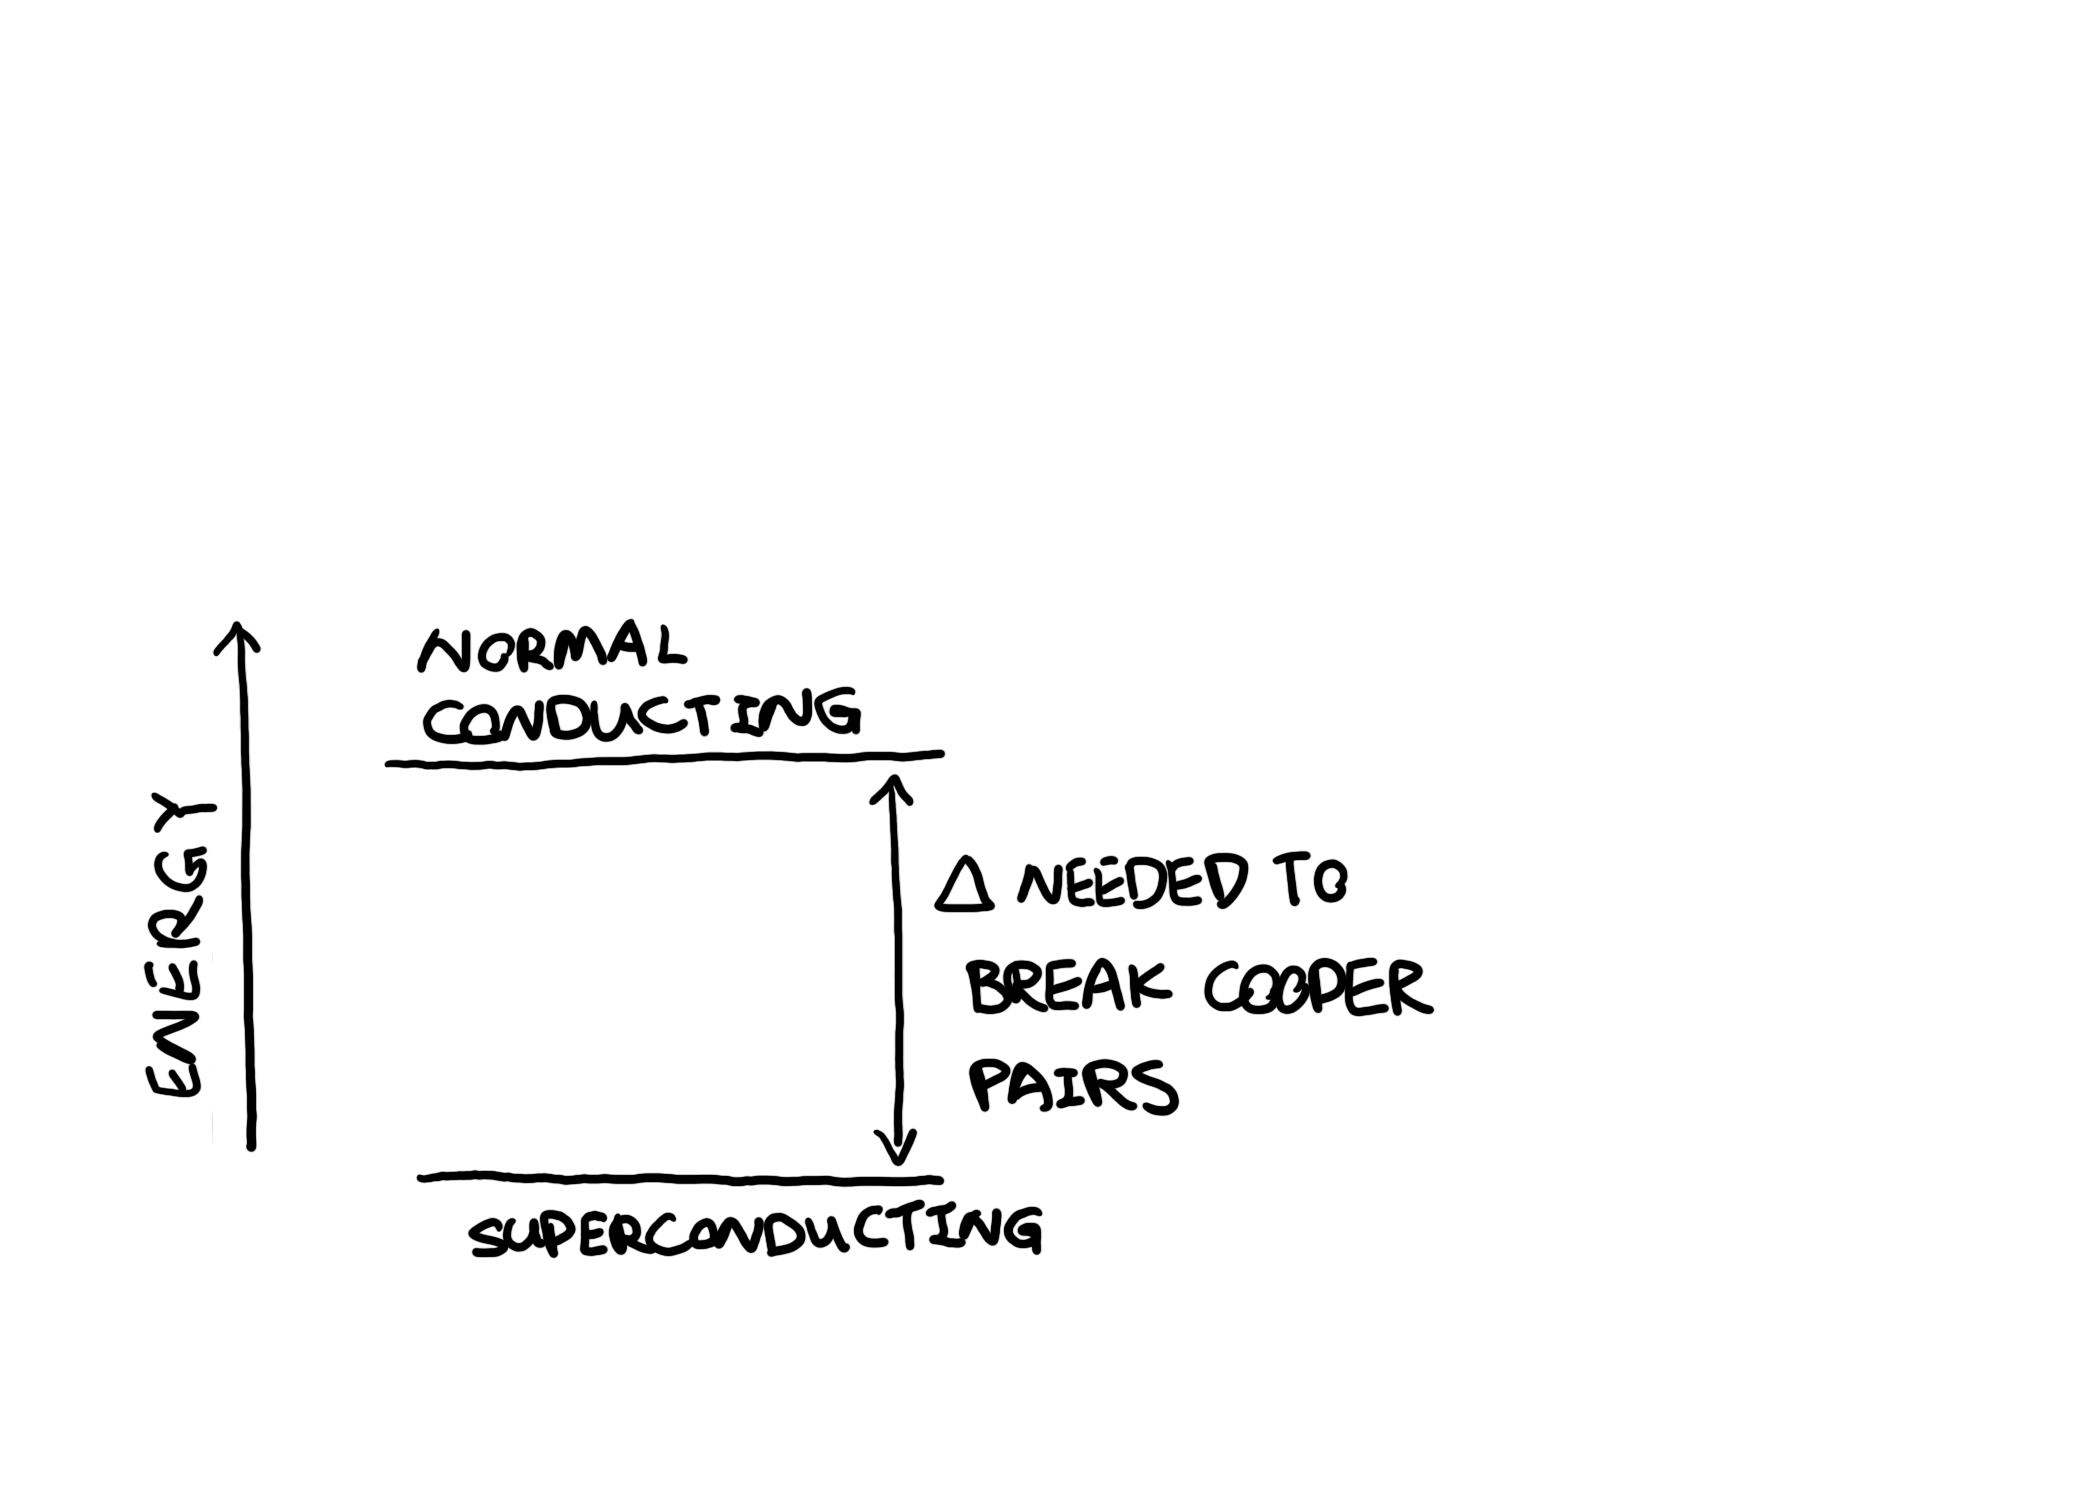 NORMAL
CONDUCTING
ENERGY
Δ NEEDED TO
BREAK COOPER
PAIRS
SUPERCONDUCTING